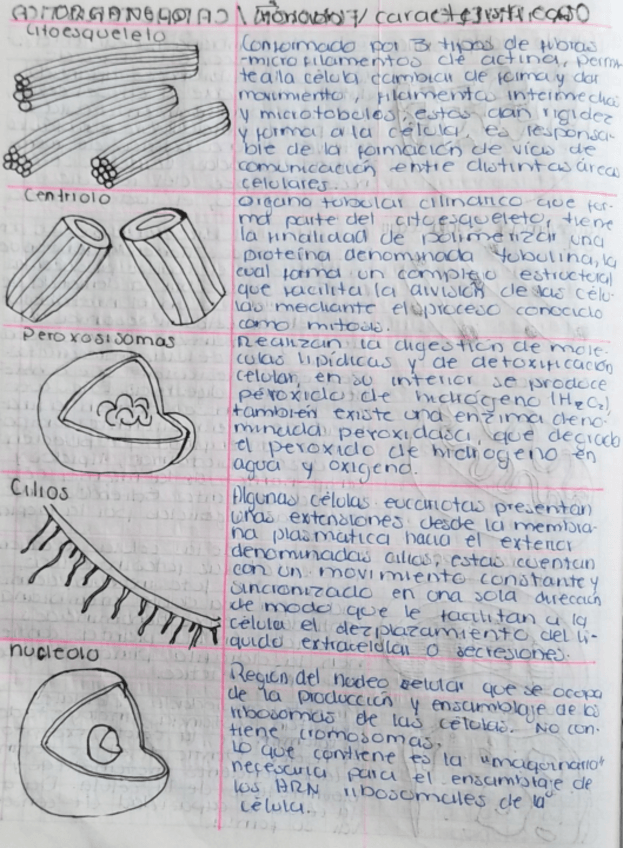 características
Citoesqueleto
Conformado por 3 tipos de fibras
-microfilamentos de actina, permi-
te a la célula cambiar de forma y dar
movimiento, filamentos intermedios
y microtobulos, estos dan rigidez
y forma a la célula, es responsa-
ble de la formación de vías de
comunicación entre distintas áreas
celulares.
Centriolo
Organo tubular cilindrico que for-
ma parte del citoesqueleto, tiene
la finalidad de polimerizar una
proteína denominada tubulina, la
cual forma un complejo estructural
que facilita la división de las célu-
las mediante el proceso conocido
como mitosis.
Peroxosisomas
Realizan la digestión de mole-
culas lipídicas y de detoxificación
celular, en su interior se produce
peróxido de hidrógeno (H2O2)
también existe una enzima deno-
minada peroxidasa, que degrada
el peroxido de hidrogeno en
agua y oxigeno.
Cilios
Algunas células eucariotas presentan
unas extensiones desde la membra-
na plasmatica hacia el exterior
denominadas cilios, estas cuentan
con un movimiento constante y
sincronizado en una sola dirección
de modo que le facilitan a la
célula el dezplazamiento del li-
quido extracelular o secresiones.
nucleolo
Región del nucleo celular que se ocupa
de la producción y ensamblaje de los
ribosomas de las células. No con-
tiene cromosomas.
Lo que contiene es la "maquinaria"
necesaria para el ensamblaje de
los ARN ribosomales de la
célula.